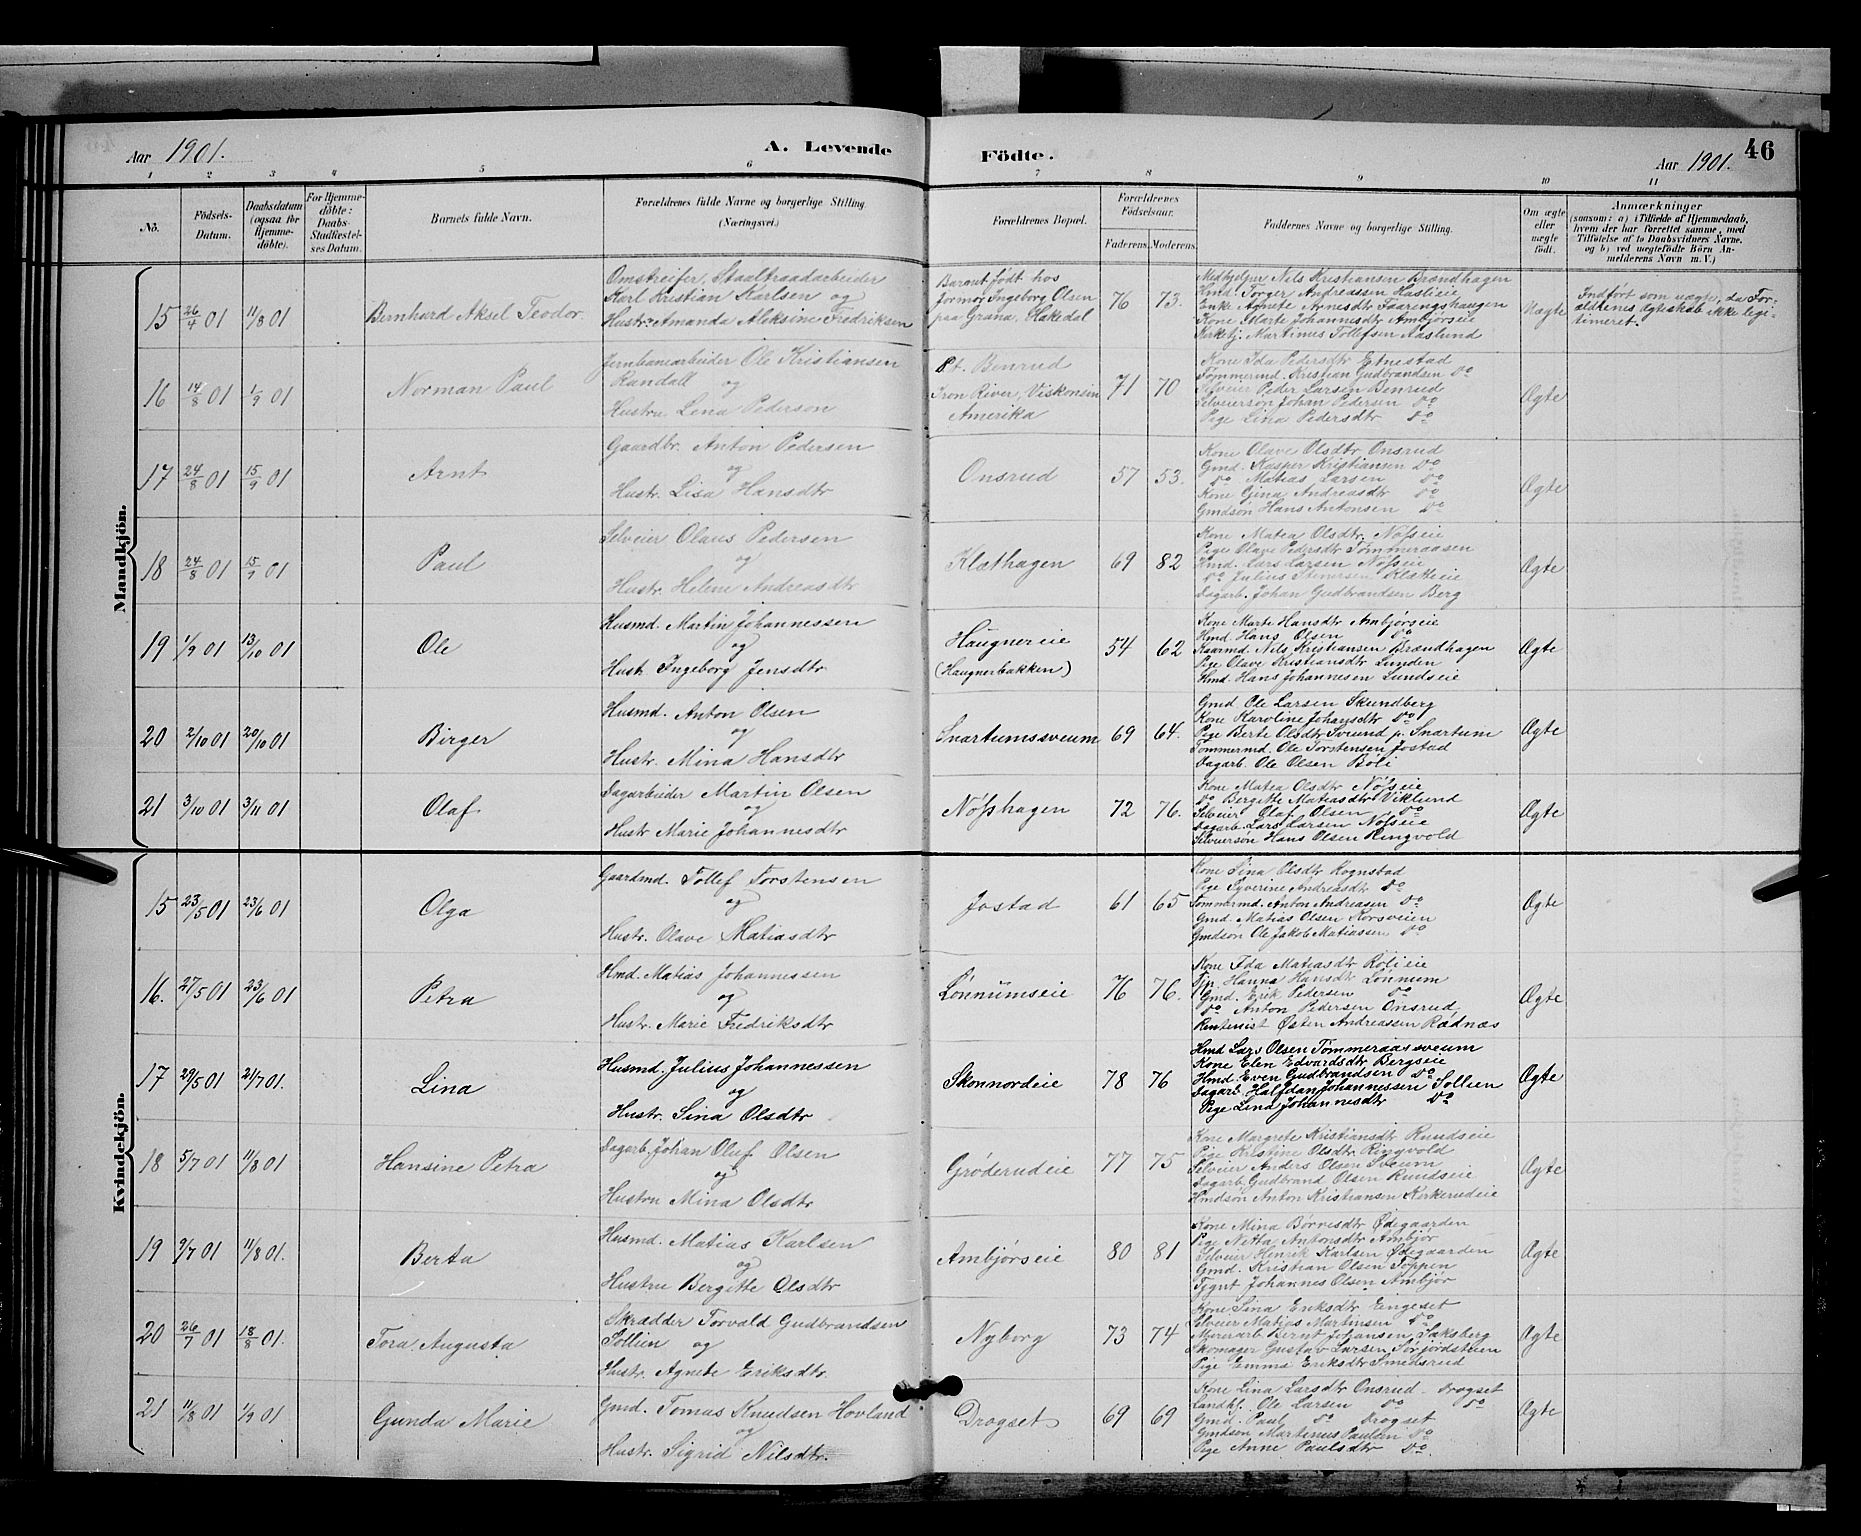 Aar 1901.
A. Levende
Födte.
Aar 1901.
46
1 2 3 4 5 6 7 8 9 10 11
No.
Födsels-Datum.
Daabsdatum (ogsaa for Hjemmedöbte).
For Hjemmedöbte: Daabs-Stadfestelses Datum.
Barnets fulde Navn.
Forældrenes fulde Navne og borgerlige Stilling (Næringsvei.)
Forældrenes Bopæl.
Forældrenes Födselsaar.
Faderens. Moderens.
Faddernes Navne og borgerlige Stilling.
Om ægte eller uægte födt.
Anmærkninger
(saasom: a) i Tilfælde af Hjemmedaab, hvem der har forrettet samme, med Tilföielse af to Daabsvidners Navne. og b) ved uegtefödte Börn Anmelderens Navn m. V.)
Mandkjön.
15 26/4 01 11/8 01 Bernhard Aksel Teodor.
Omstreifer, Staaltraadarbeider
Karl Kristian Karlsen og
Hustr. Amanda Aleksine Fredriksen
Barnet født hos
Jormoj Ingeborg Olsen
paa Grana, Hakedal
76 73.
Medhjelper Nils Kristiansen Brændhagen
Hmd. Torger Andreassen Haslieie
Enke Agnete Agnesdtr Faaringshaugen
Kone Marte Johannesdtr Ambjørseie
Kirktj. Martinus Tollefsen Aaslund
Uægte
Indført som uægte, da For-
ældrenes ægteskab ikke legi-
timeret.
16 14/8 01 1/9 01 Norman Paul
Jernbanearbeider Ole Kristiansen
Randall og
Hustru Lena Pederson
Pt. Benrud
Iron River, Viskonsin
Amerika
71 70
Kone Ida Pedersdtr Etnestad
Tömmermd. Kristian Gudbrandsen Do
Selveier Peder Larsen Benrud
Selveiersön Johan Pedersen Do
Pige Lina Pedersdtr Do
Ægte
17 24/8 01 15/9 01 Arnt
Gaardbr. Anton Pedersen
og
Hustr. Lisa Hansdtr
Onsrud
57 53.
Kone Olave Olsdtr Onsrud
Gmd. Kasper Kristiansen Do
Do Matias Larsen Do
Kone Gina Andreasdtr Do
Gmdsön Hans Antonsen Do
Ægte
18 24/8 01 15/9 01 Paul
Selveier Olaus Pedersen
og
Hustr. Helene Andreasdtr
Klæthagen
69 82
Kone Matea Olsdtr. Nøfseie
Pige Olave Pedersdtr Tømmeraasen
Hmd. Lars Larsen Nøfseie
Do Julius Stenersen Klætteie
Dagarb. Johan Gudbrandsen Berg
Ægte
19 1/9 01 13/10 01 Ole
Husmd. Martin Johannessen
og
Hust. Ingeborg Jensdtr
Haugnereie
(Haugnerbakken)
54 62
Kone Marte Hansdtr Ambjörseie
Hmd. Hans Olsen Do
Kaarmd. Nils Kristiansen Brændhagen
Pige Olave Kristiansdtr Lunden
Hmd. Hans Johannesen Lundseie
Ægte
20 2/10 01 20/10 01 Birger
Husmd. Anton Olsen
og
Hustr. Mina Hansdtr
Snartumssveum
69 64.
Gmd Ole Larsen Skundberg
Kone Karoline Johansdtr Do
Pige Berte Olsdtr Sveund p. Snartum
Tömmermd. Ole Torstensen Jostad
Dagarb. Ole Olsen Böli
Ægte
21 3/10 01 3/11 01 Olaf
Dagarbeider Martin Olsen
og
Hustr Marie Johannesdtr
Nøfshagen
72 76.
Kone Matea Olsdtr Nøfseie
Do Bergitte Matiasdtr Viklund
Selveier Olaf Olsen Do
Dagarb. Lars Larsen Nøfseie
Selveiersøn Hans Olsen Ringvold
Ægte
Kvindekjön.
15 23/5 01 23/6 01 Olga
Gaardmd. Tollef Torstensen
og
Hustr. Olave Matiasdtr
Jostad
61 65
Kone Lina Olsdtr Rognstad
Pige Syverine Andreasdtr Do
Tömmermd. Anton Andreasen Do
Gmd. Matias Olsen Korsveien
Gmdsön Ole Jakob Matiassen Do
Ægte
16. 27/5 01 23/6 01 Petra
Hmd. Matias Johannessen
og
Hustr. Marie Fredriksdtr
Lønnumseie
76 76.
Kone Ida Matiasdtr Rölieie
Tjp. Hanna Hansdtr Lønnum
Gmd. Erik Pedersen Do
Do Anton Pedersen Onsrud,
Rentenist Østen Andreassen Rædnæs
Ægte
17 29/5 01 21/7 01. Lina
Husmd. Julius Johannessen
og
Hustr. Sina Olsdtr
Skonnordeie
78 76
Hmd Lars Olsen Tömmeraassveum
Kone Elen Edvardsdtr Bergseie
Hmd. Even Gudbrandsen Do
Dagarb. Halfdan Johannessen Sollien
Pige Lina Johannesdtr Do
Ægte
18 5/7 01 11/8 01 Hansine Petra
Dagarb. Johan Oluf Olsen
og
Hustru Mina Olsdtr
Grøderudeie
77 75
Kone Margrete Kristiansdtr Rundseie
Pige Kristine Olsdtr Ringvold
Selveier Anders Olsen Sveum
Dagarb. Gudbrand Olsen Rundseie
Hmdsön Anton Kristiansen Kerkerudeie
Ægte
19 9/7 01 11/8 01. Berta
Husmd. Matias Karlsen
og
Hustru Bergitte Olsdtr
Ambjørseie
80 81
Kone Mina Børresdtr Ødegaarden
Pige Netta Antonsdtr Ambjør
Selveier Henrik Karlsen Ødegaarden
Gmd. Kristian Olsen Toppen
Tjgut Johannes Olsen Ambjør
Ægte
20 26/7 01 18/8 01. Tora Augusta
Skrædder Torvald Gudbrandsen
Sollien og
Hustr. Agnete Eriksdtr.
Nyborg
73 74
Kone Lina Eriksdtr Eingeset
Selveier Matias Martinsen Do
Murerarb Bernt Johansen Saksberg
Skomager Gustav Larsen Sørjordsteien
Pige Emma Eriksdtr Smedsrud
Ægte
21 11/8 01 1/9 01 Gunda Marie
Gmd. Tomas Knudsen Hovland
og
Hustr. Sigrid Nilsdtr.
Drogset
69 69
Kone Lina Larsdtr Onsrud Drogset
Landh. Ole Larsen Do Do
Gmd. Paul Do Drogset
Gmdsön Martinus Paulsen Do
Pige Anne Paulsdtr Do.
Ægte